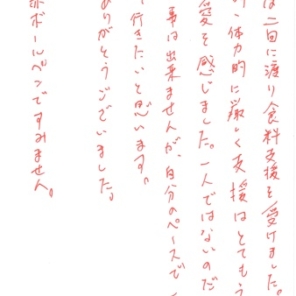 は二回に渡り食料支援を受けました。
り、体力的に厳しく支援はとてもう
愛を感じました。一人ではないのだ
事は出来ませんが、自分のペースで
行きたいと思います。
ありがとうございました。
赤ボールペンですみません。